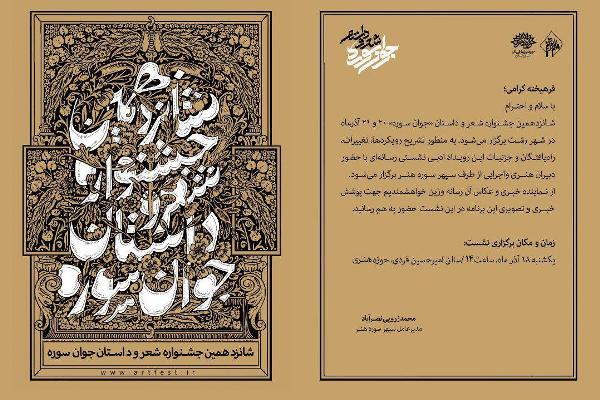 شانزدهمین
جشنواره
شعر و
داستان
جوان سوره
شانزدهمین جشنواره شعر و داستان جوان سوره
www.artfest.ir
فرهیخته گرامی؛
با سلام و احترام
شانزدهمین جشنواره شعر و داستان «جوان سوره» ۲۰ و ۲۱ آذرماه
در شهر رشت برگزار می‌شود. به منظور تشریح رویکردها، تغییرات،
راه‌یافتگان و جزئیات این رویداد ادبی نشستی رسانه‌ای با حضور
دبیران هنری و اجرایی از طرف سپهر سوره هنر برگزار می‌شود.
از نماینده خبری و عکاس آن رسانه وزین خواهشمندیم جهت پوشش
خبری و تصویری این برنامه در این نشست حضور به هم رسانید.
زمان و مکان برگزاری نشست:
یکشنبه ۱۸ آذر ماه، ساعت ۱۴ /سالن امیرحسین فردی، حوزه هنری
محمد زرویی نصرآباد
مدیرعامل سپهر سوره هنر